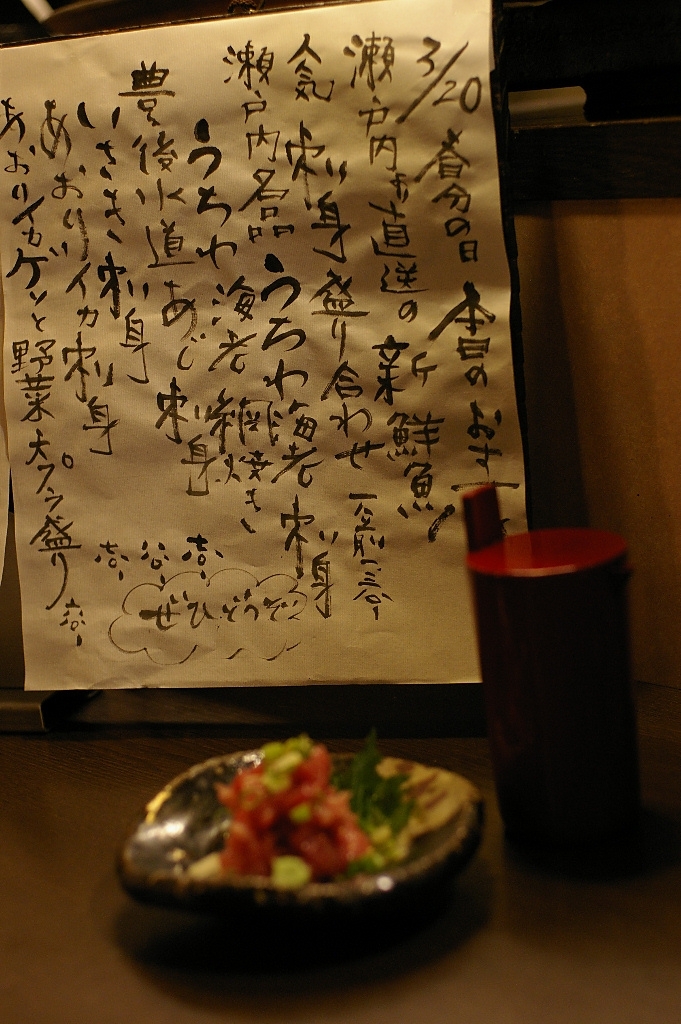 3/20 春分の日 本日のおす
瀬戸内より直送の新鮮魚!!
人気 刺身盛り合わせ 一人前
瀬戸内名品 うちわ海老 刺身
うちわ海老 網焼き
豊後水道 あじ 刺身
いさき 刺身
あおりイカ 刺身
あおりイカゲソと野菜天プラ盛り
ぜひどうぞ